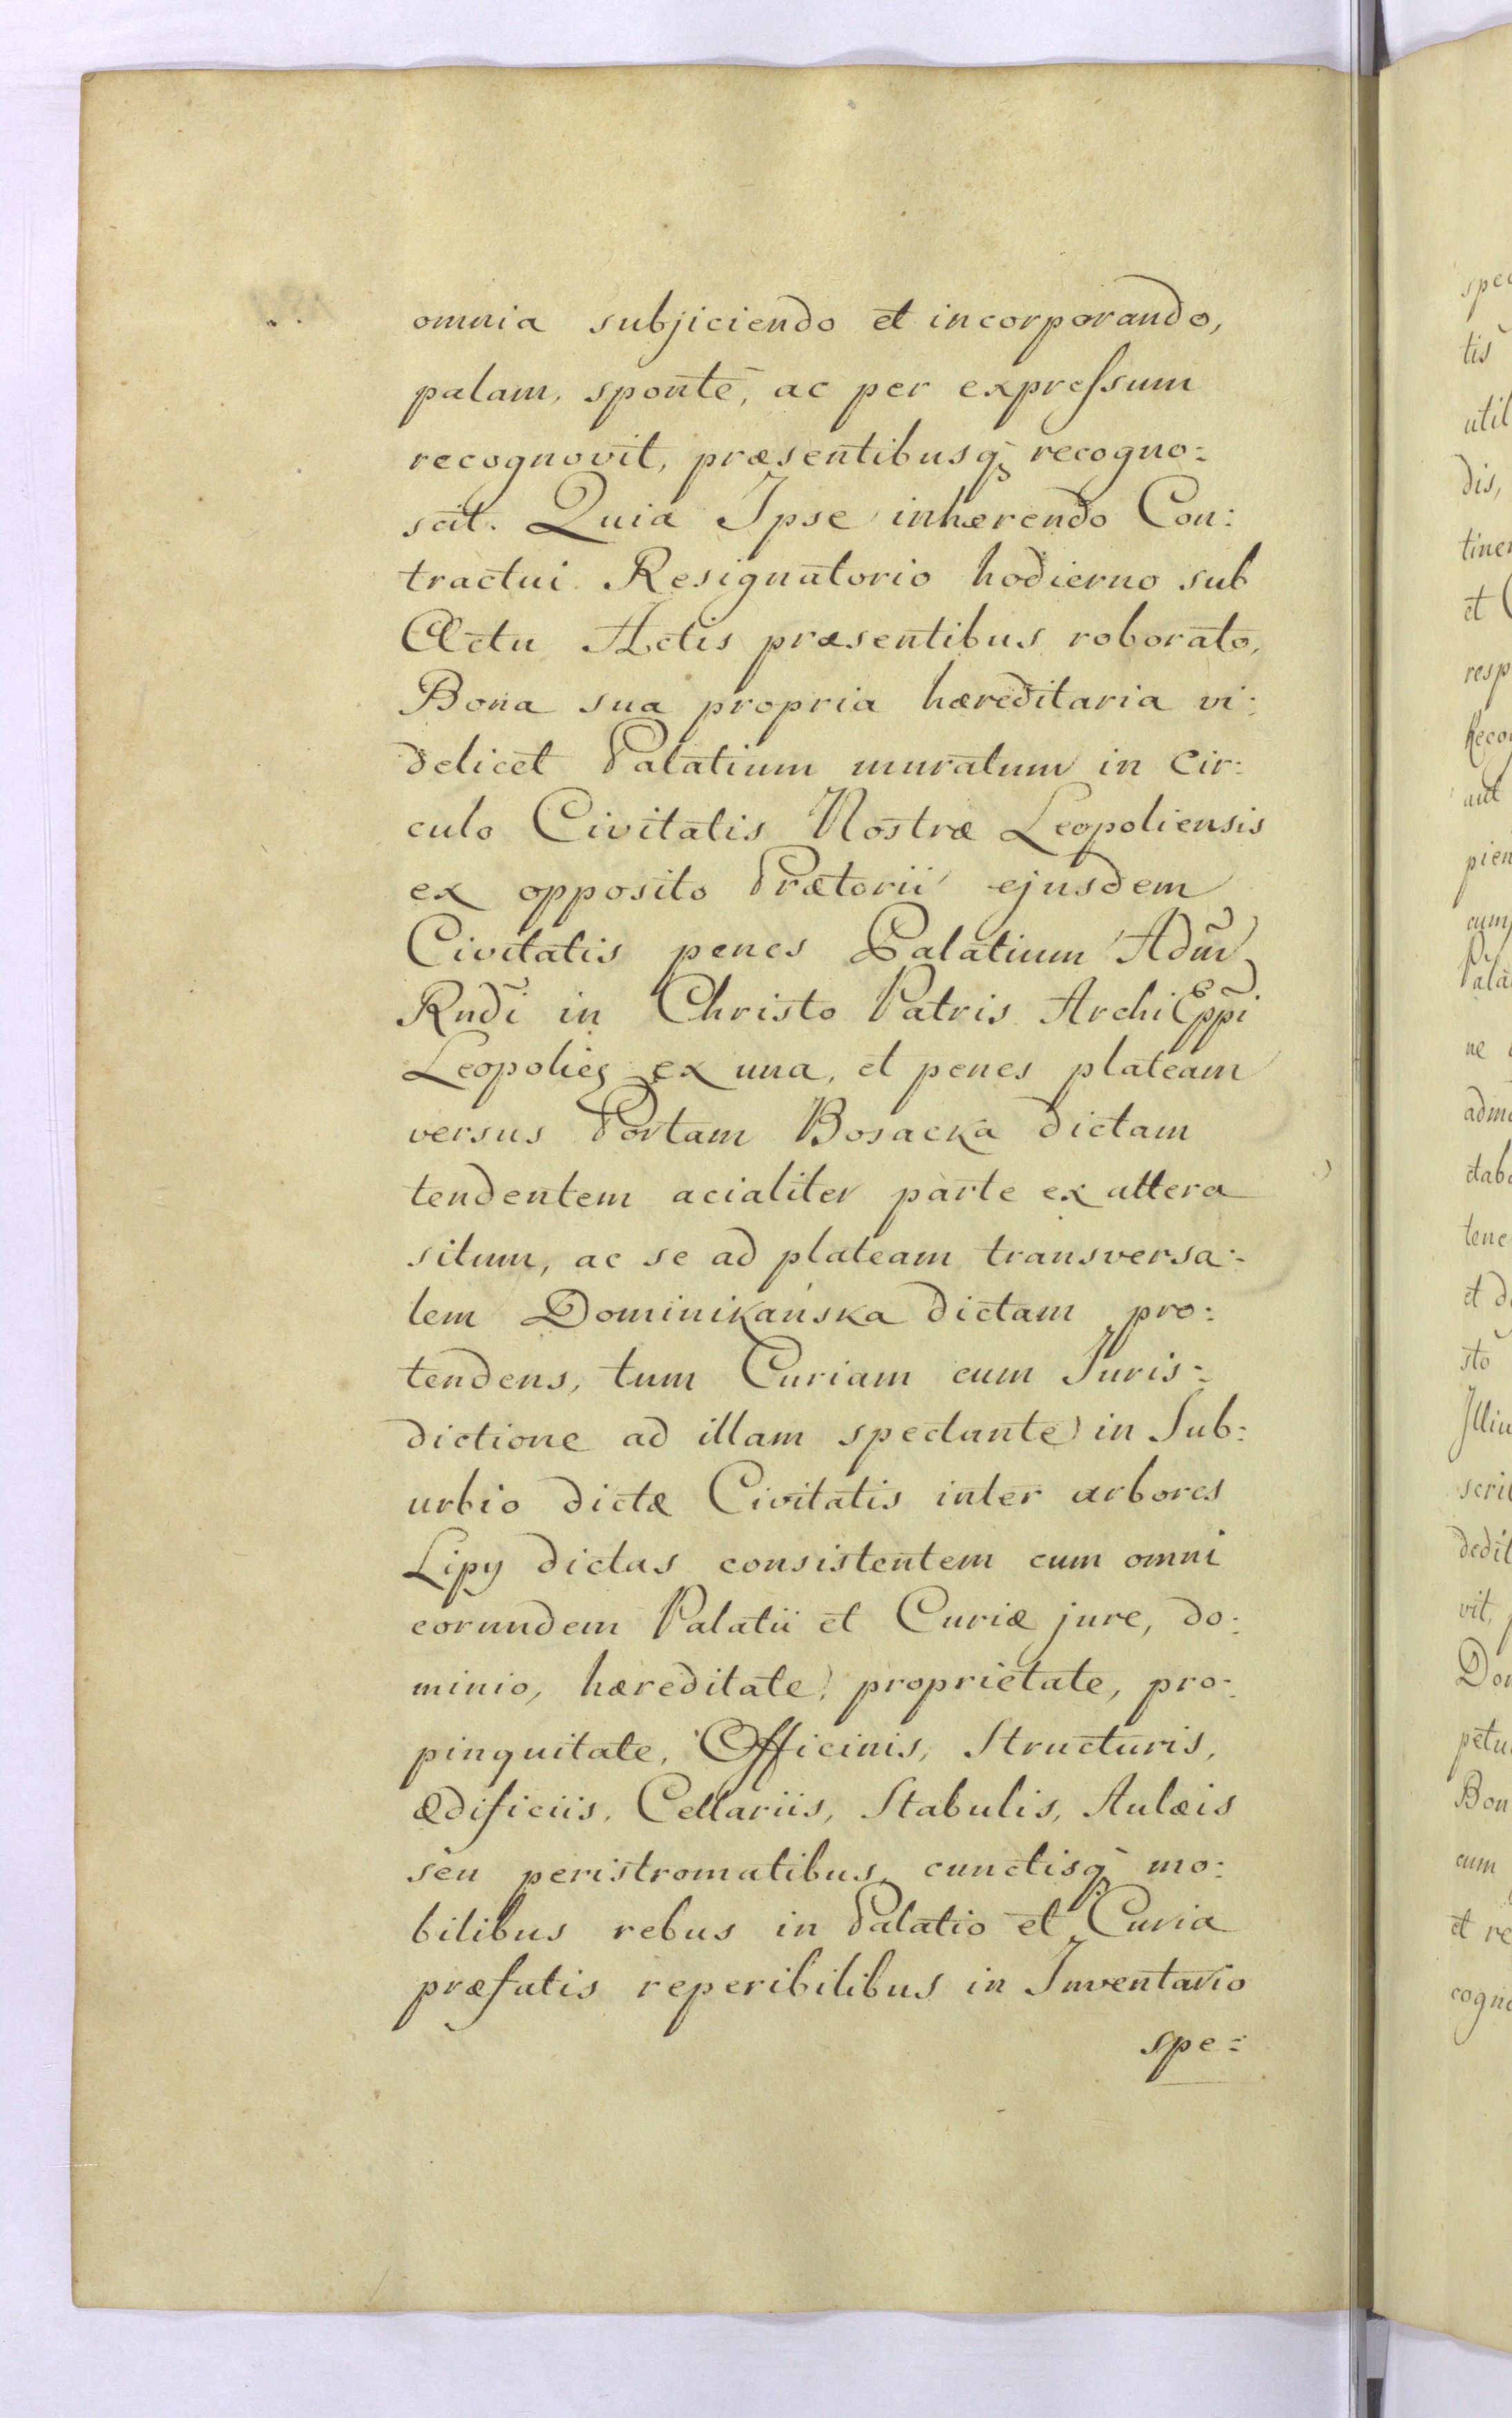 omnia subjiciendo et incorporando,
palam, sponte, ac per expressum
recognovit, præsentibusq̃ recogno:
scit. Quia Ipse inhærendo Con:
tractui Resignatorio hodierno sub
Actu Actis præsentibus roborato,
Bona sua propria hæreditaria vi:
delicet Palatium muratum in Cir:
culo Civitatis Nostræ Leopoliensis
ex opposito Prætorii ejusdem
Civitatis penes Palatium Adm̃
Rndĩ in Christo Patris ArchiEpp̃i
Leopolieş ex una, et penes plateam
versus Portam Bosacka dictam
tendentem acialiter parte ex altera
situm, ac se ad plateam transversa:
lem Dominikańska dictam pro:
tendens, tum Curiam cum Juris:
dictione ad illam spectante in Sub:
urbio dictæ Civitatis inter arbores
Lipy dictas consistentem cum omni
eorundem Palatii et Curiæ jure, do:
minio, hæreditate, proprietate, pro:
pinquitate, Officinis, Structuris,
Ædificiis, Cellariis, Stabulis, Aulæis
seu peristromatibus, cunctisq̃ mo:
bilibus rebus in Palatio et Curia
præfatis reperibilibus in Inventario
spe: